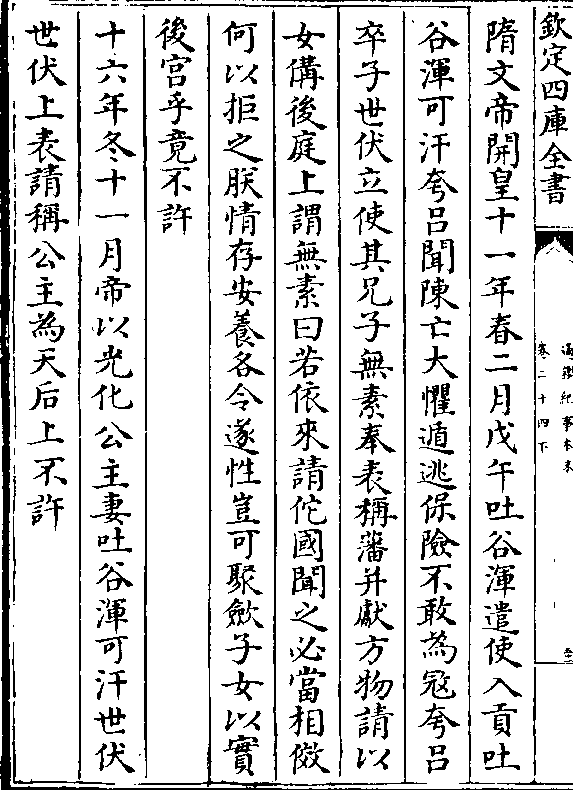 欽定四庫全書
通鑑紀事本末
卷二十四下
隋文帝開皇十一年春二月戊午吐谷渾遣使入貢吐
谷渾可汗夸呂聞陳亡大懼遁逃保險不敢為寇夸呂
卒子世伏立使其兄子無素奉表稱藩并獻方物請以
女備後庭上謂無素曰若依來請佗國聞之必當相傚
何以拒之朕情存安養各令遂性豈可聚斂子女以實
後宮乎竟不許
十六年冬十一月帝以光化公主妻吐谷渾可汗世伏
世伏上表請稱公主為天后上不許